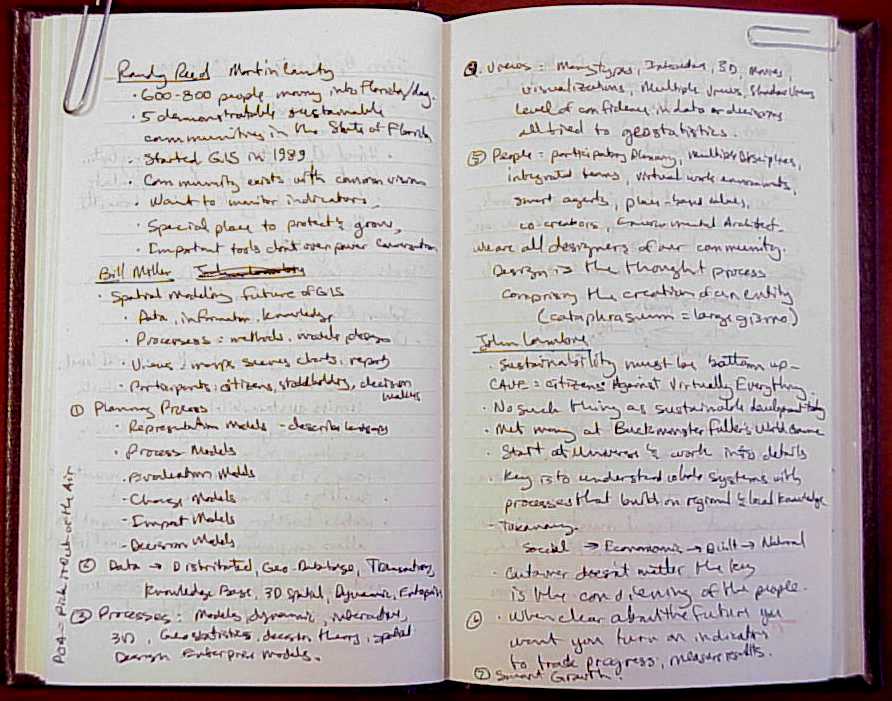 Randy Reed Martin County
· 600-800 people moving into Florida/day.
· 5 demonstratable sustainable
communities in the State of Florida
· Started GIS in 1989
· Community exists with common vision
· Want to monitor indicators.
· Special place to protect & grow,
· Important tools don't over power conversation
Bill Miller
· Spatial Modeling future of GIS
· Data, information, knowledge
· Processess: methods, models,
· Views: maps scenes charts, reports
· Participants: citizens, stakeholders, decision
makers
① Planning Process
· Representation Models - describes
· Process Models
· Evaluation Models
· Change Models
· Impact Models
· Decision Models
② Data → Distributed, Geo Database, Transactions,
Knowledge Base, 3D Spatial, Dynamic, Enterprise
③ Processes: Models, dynamic, interactive,
3D, Geostatistics, decision theory, spatial
Design Enterprise models.
POA = Pick it Out of the Air
④. Views: Many types, 3D, Movies,
visualizations, Multiple Views, Shadow Views
Level of confidence in data or decisions
all tied to geostatistics.
⑤ People: participatory Planning, multiple disciplines,
integrated teams, virtual work environments,
smart agents, place-based values,
co-creators, Environmental Architect.
we are all designers of our community.
Design is the thought process
comprising the creation of an entity
(cataphrasium = large gizmo)
John
· Sustainability must be bottom up-
CAVE = Citizens Against Virtually Everything
· No such thing as sustainable development today
· Met many at Buckminster Fuller's World Game
· Start at Universe & work into details
· Key is to understand whole systems with
processes that build on regional & local knowledge
- Taxonomy.
Social → Economic → Built → Natural
· Customer doesn't matter the key
is the of the people.
⑥ · When clear about the future you
want you turn on indicators
to track progress, measure results.
⑦ Smart Growth.